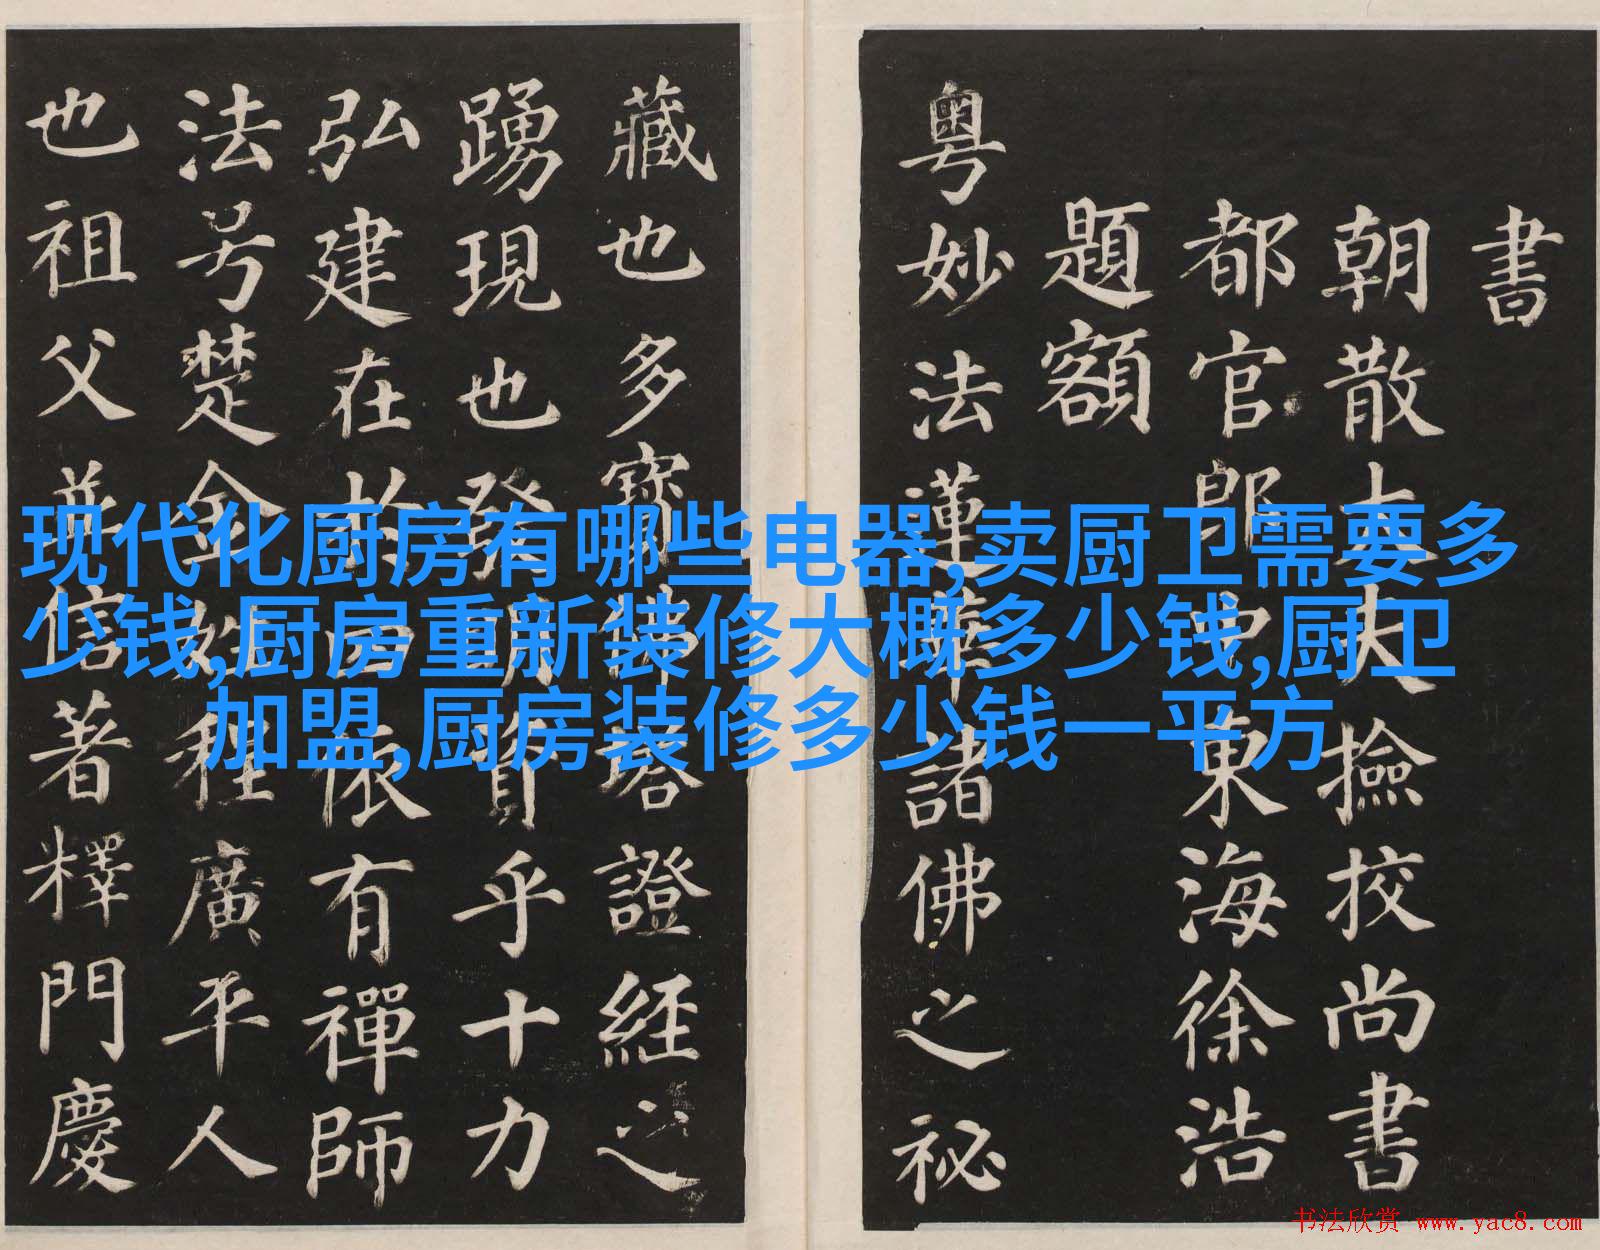 现代化厨房有哪些电器,卖厨卫需要多
少钱,厨房重新装修大概多少钱,厨卫
加盟,厨房装修多少钱一平方
書
朝散大夫撿挍尚書
都官郎中東海徐浩
題額
粤妙法蓮華諸佛之祕
藏也多寶佛塔證經之
踴現也發明資乎十力
弘建在於四依有禪師
法号楚金姓程廣平人
也祖父並信著釋門慶
书法欣赏 www.yac8.com